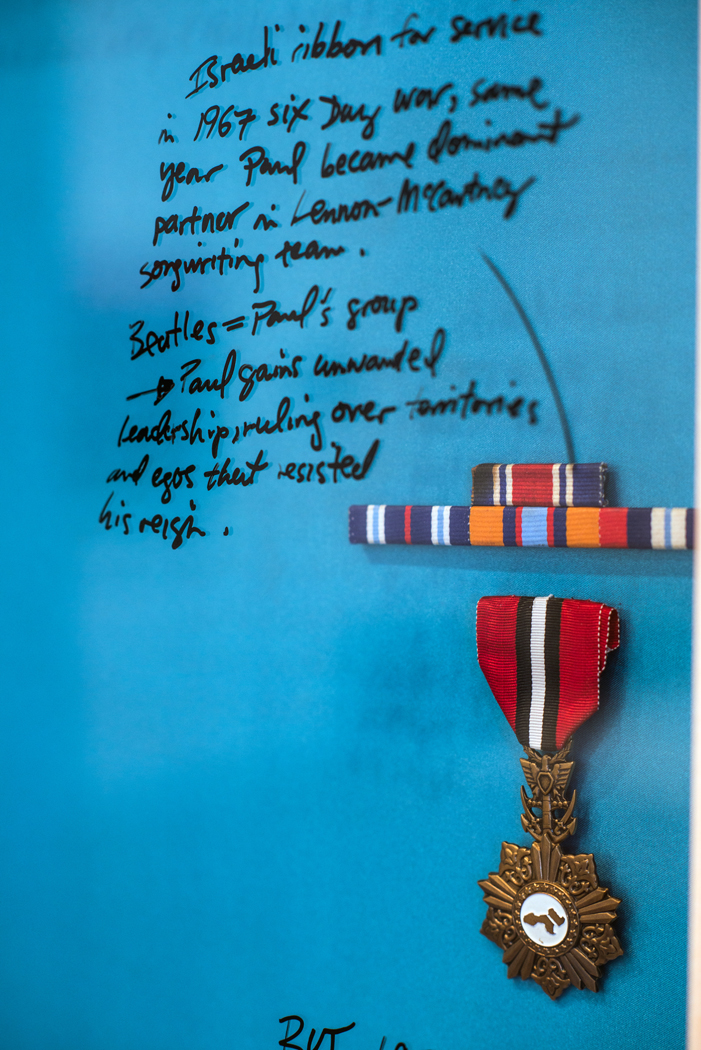 Israeli ribbon for service
in 1967 six Day war, same
year Paul became dominant
partner in Lennon-McCartney
songwriting team.
Beatles = Paul's group
→ Paul gains unwanted
leadership, ruling over territories
and egos that resisted
his reign.
BUT